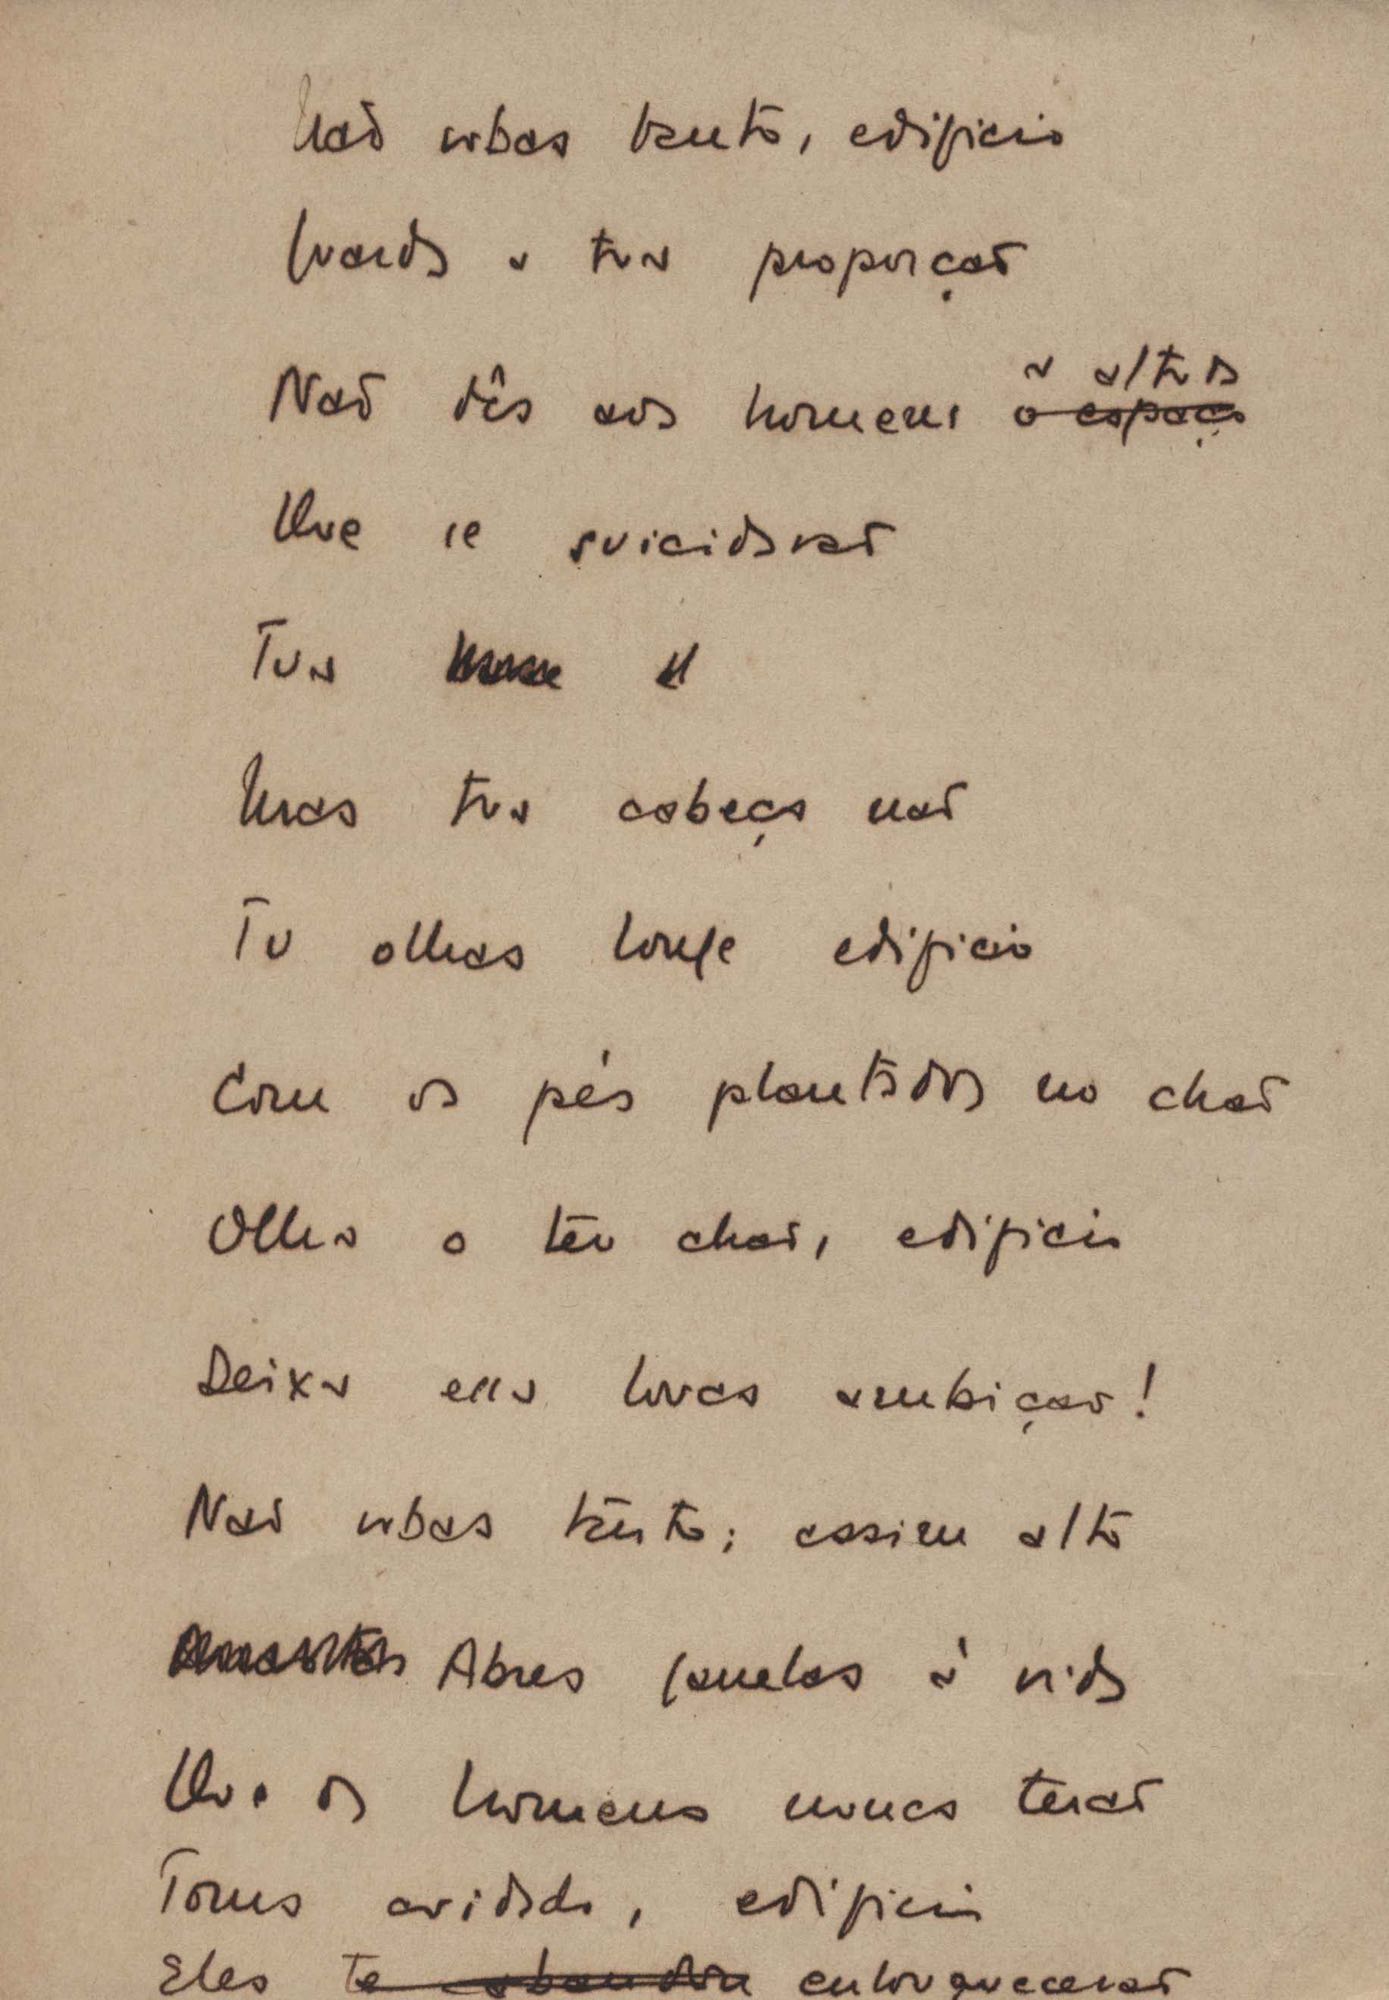 Não subas tanto, edifício
Guarda a tua proporção
a altura
Não dês aos homens o espaço
Que se suicidarão
Tua
Mas tua cabeça não
Tu olhas longe edifício
Com os pés plantados no chão
Olha o teu chão, edifício
Deixa essa louca ambição!
Não subas tanto; assim alto
Abres janelas à vida
Que os homens nunca terão
Toma cuidado, edifício
Eles te abandon enlouquecerão